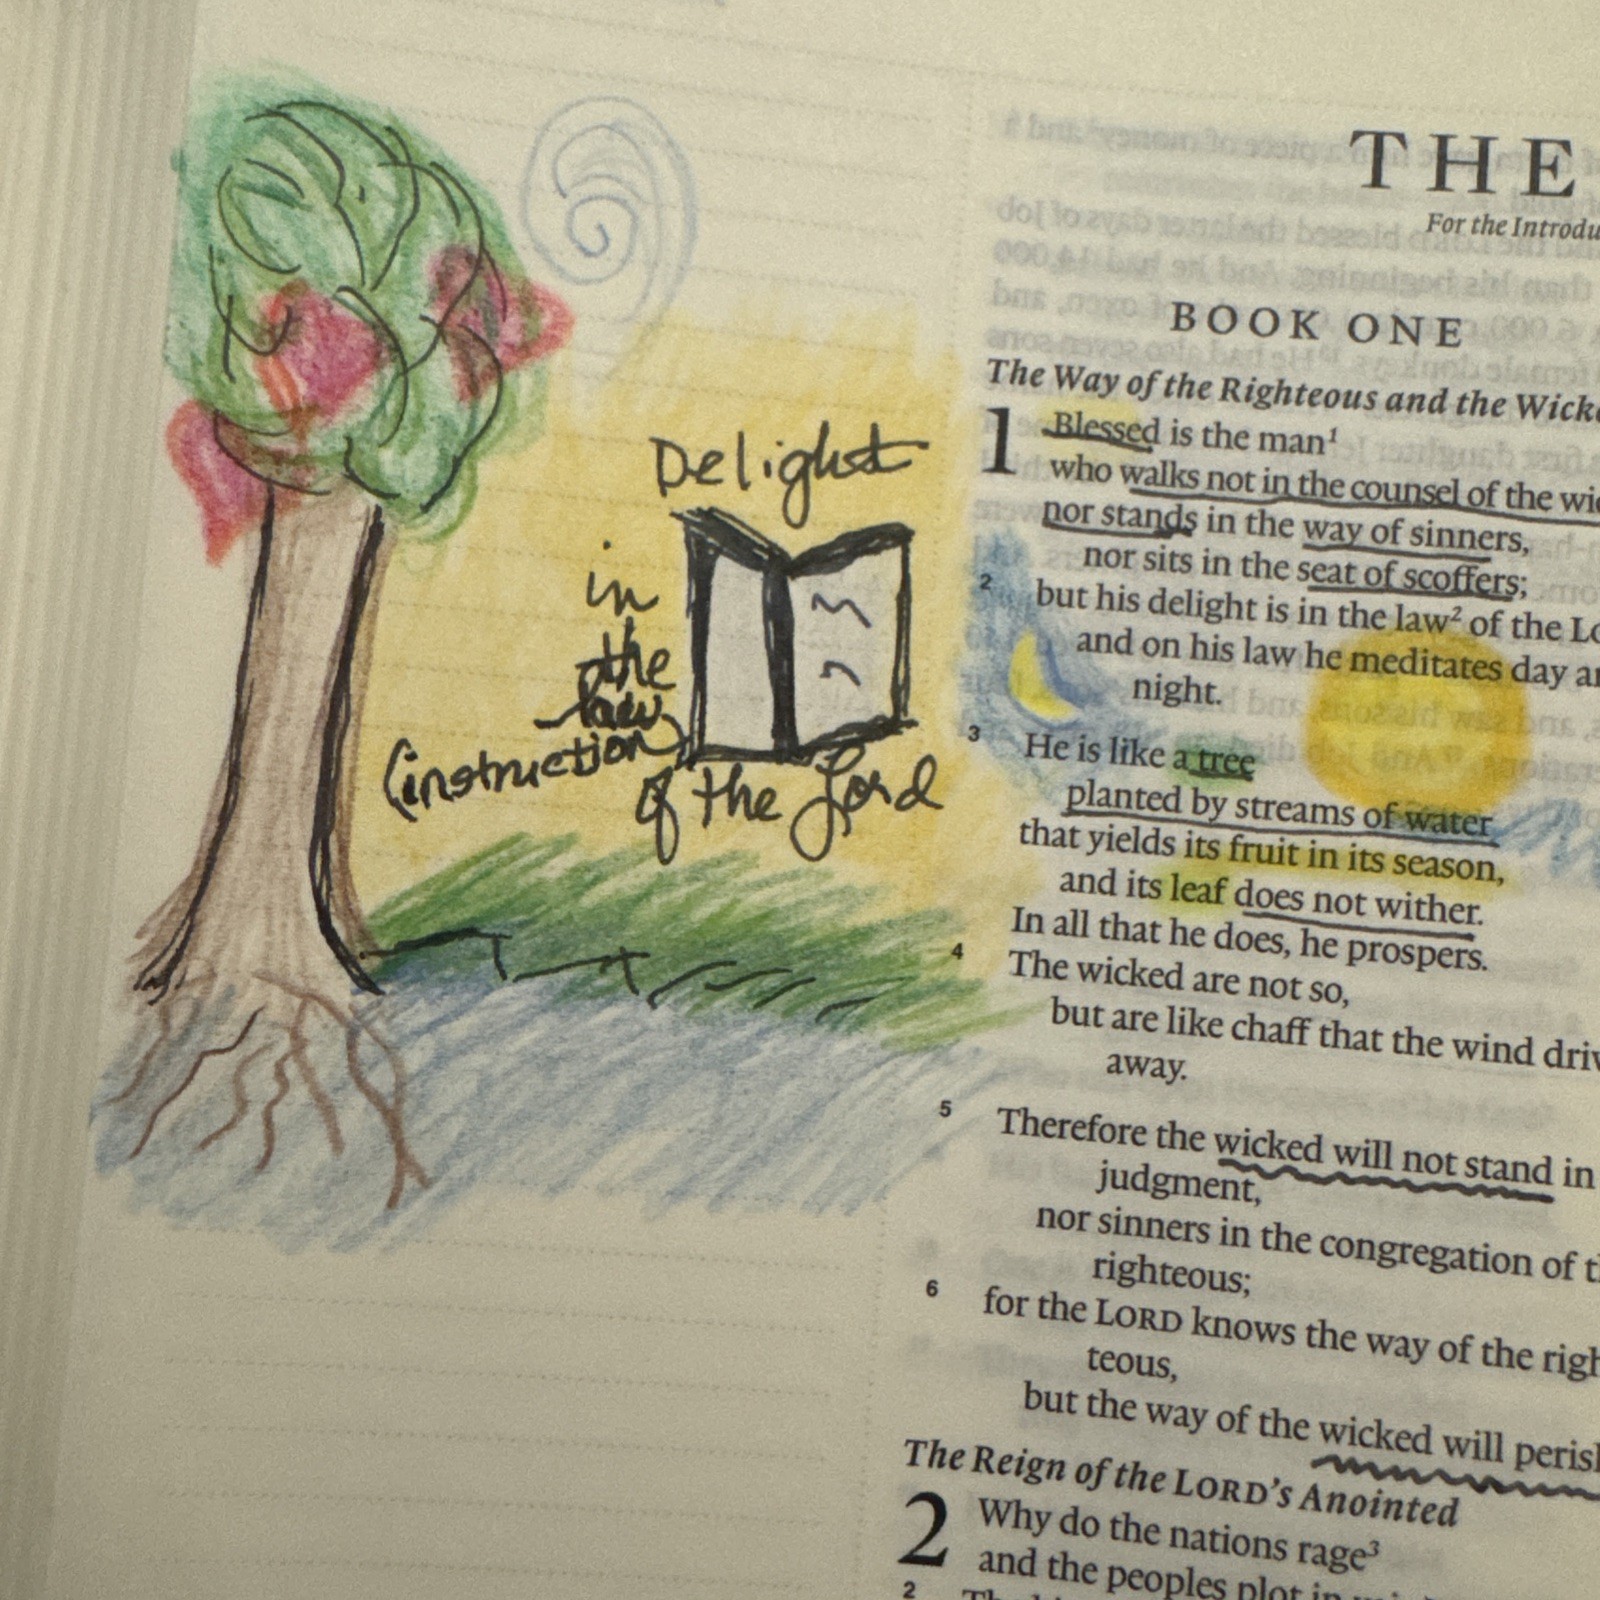 Delight
in
the
law
(instruction)
of the Lord
THE
For the Introdu
BOOK ONE
The Way of the Righteous and the Wick
1 Blessed is the man¹
who walks not in the counsel of the wi
nor stands in the way of sinners,
nor sits in the seat of scoffers;
2 but his delight is in the law² of the Lo
and on his law he meditates day a
night.
3 He is like a tree
planted by streams of water
that yields its fruit in its season,
and its leaf does not wither.
In all that he does, he prospers.
4 The wicked are not so,
but are like chaff that the wind driv
away.
5 Therefore the wicked will not stand in
judgment,
nor sinners in the congregation of t
righteous;
6 for the LORD knows the way of the righ
teous,
but the way of the wicked will peris
The Reign of the LORD's Anointed
2 Why do the nations rage³
and the peoples plot in
2